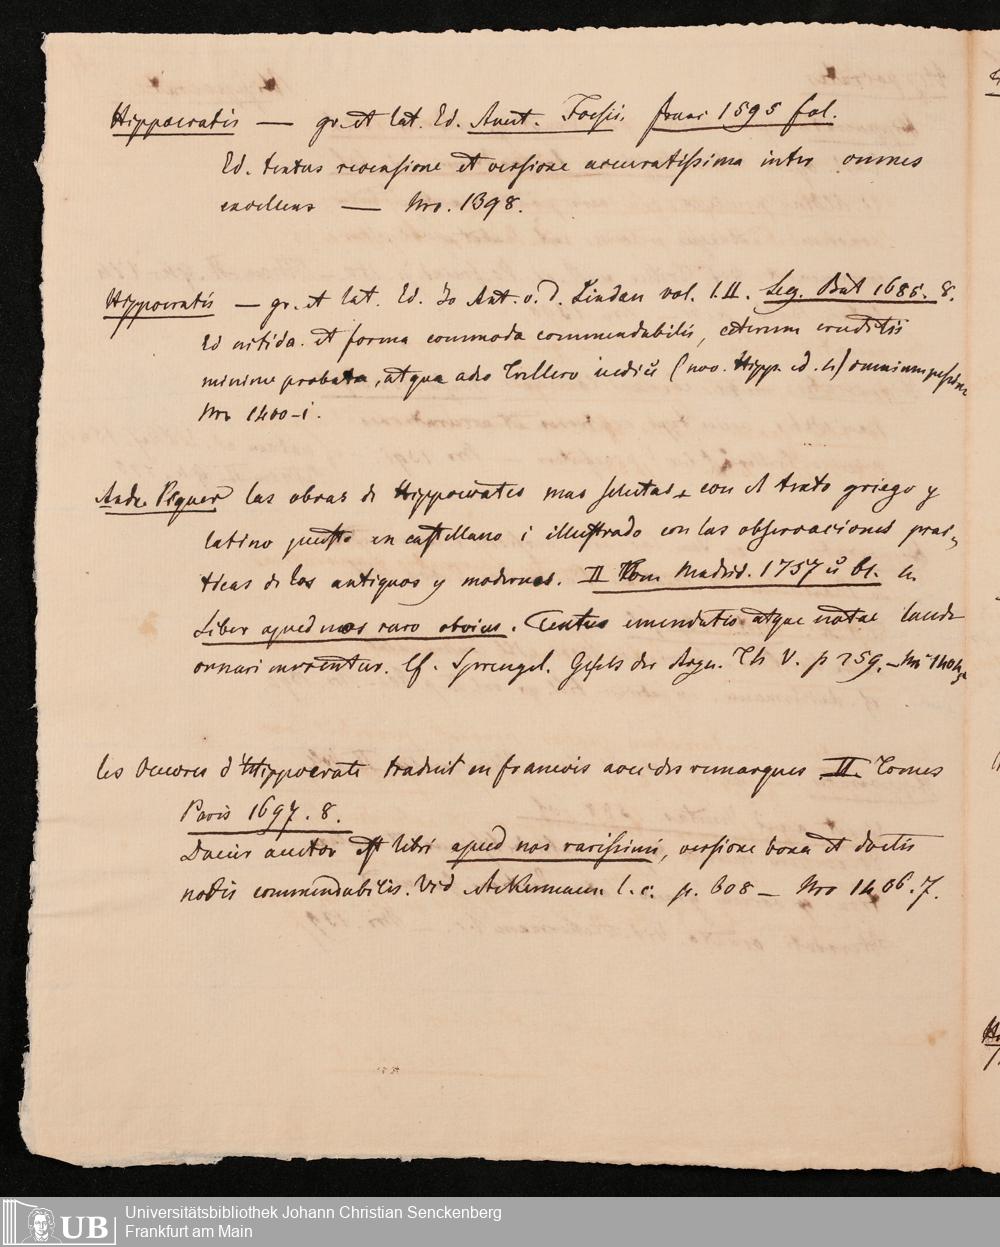 Hippocratis — gr. et lat. Ed. Anut. Foesii. francf 1595 fol.
Ed. textus recensione et versione accuratissima inter omnes
excellens — Nro. 1398.
Hippocratis — gr. et lat. Ed. Jo Ant. v. D. Linden vol. I. II. Lug. Bat 1685. 8.
Ed nitida et forma commoda commendabilis, ceterum eruditis
minime probata, atque adeo Trillero iudice (nov. Hipp. ed. 4) omnium pessima
Nro 1400-1.
Andr. Piquer las obras de Hippocrates mas selectas, con el texto griego y
latino puesto en castellano i illustrado con las observaciones prac-
ticas de los antiguos y modernos. II Tom Madrid. 1757 u 61. 4.
Liber apud nos raro obvius. Textus emendatio atque notae laude
ornari merentur. Cf. Sprengel. Gesch der Arzn. Th V. p 259. — Nro 1404
les Oeuvres d'Hippocrate traduit en francois avec des remarques II. Tomes
Paris 1697. 8.
Dacier auctor est libri apud nos rarissimi, versione bona et doctis
notis commendabilis. Vid Ackermann l. c. p. 608 — Nro 1406. 7.
UB
Universitätsbibliothek Johann Christian Senckenberg
Frankfurt am Main